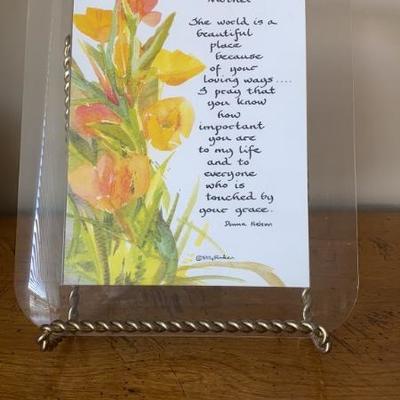 Mother
The world is a
beautiful
place
because
of your
loving ways....
I pray that
you know
how
important
you are
to my life
and to
everyone
who is
touched by
your grace.
Donna